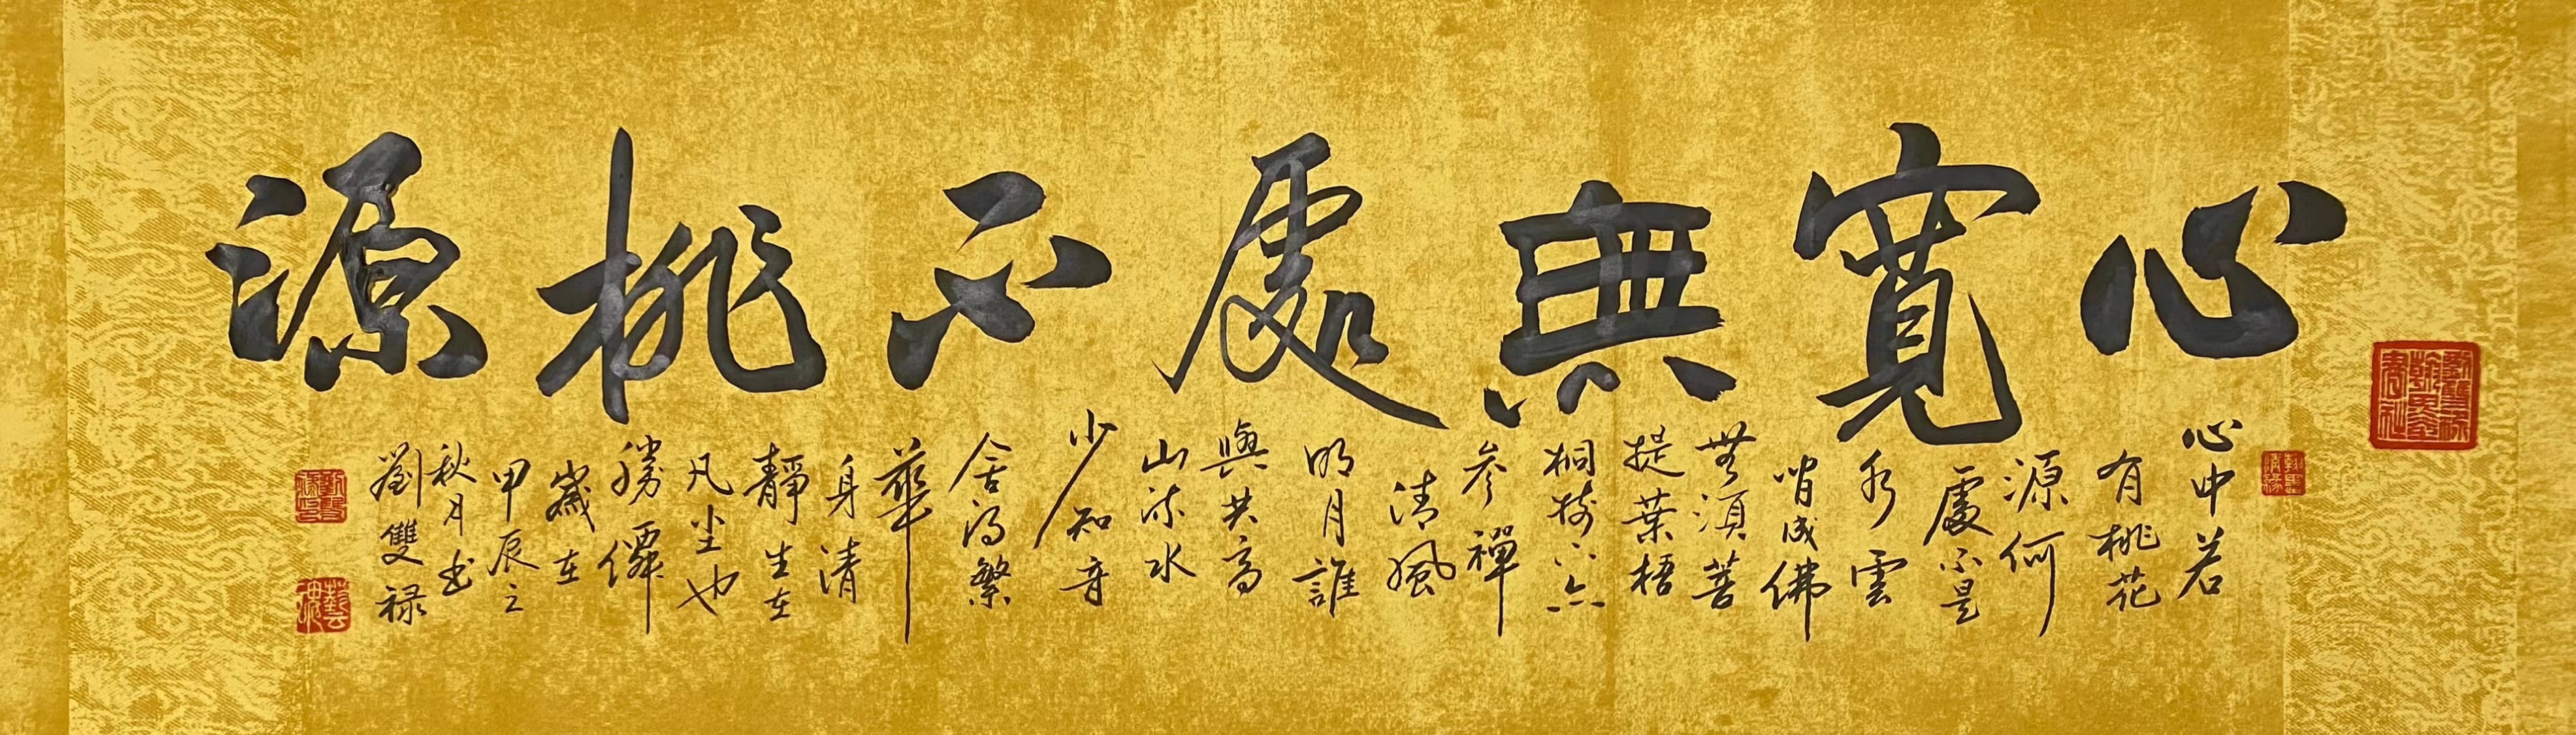 心寬無處不桃源
心中若
有桃花
源何
處不是
水雲
間成佛
無須菩
提葉梧
桐樹下亦
參禪
清風
明月誰
與共高
山流水
少知音
舍得繁
華
身清
靜生在
凡尘也
勝僊
歲在
甲辰之
秋月书
劉雙禄